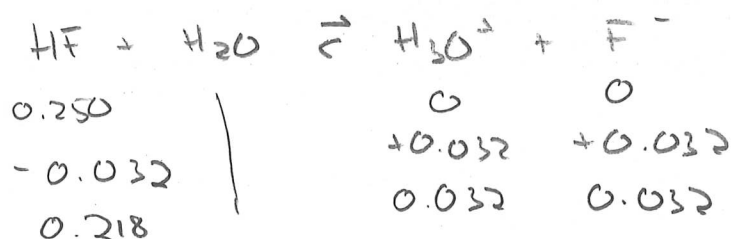 HF + H₂O ⇄ H₃O⁺ + F⁻
0.250 | 0 0
- 0.032 +0.032 +0.032
0.218 0.032 0.032